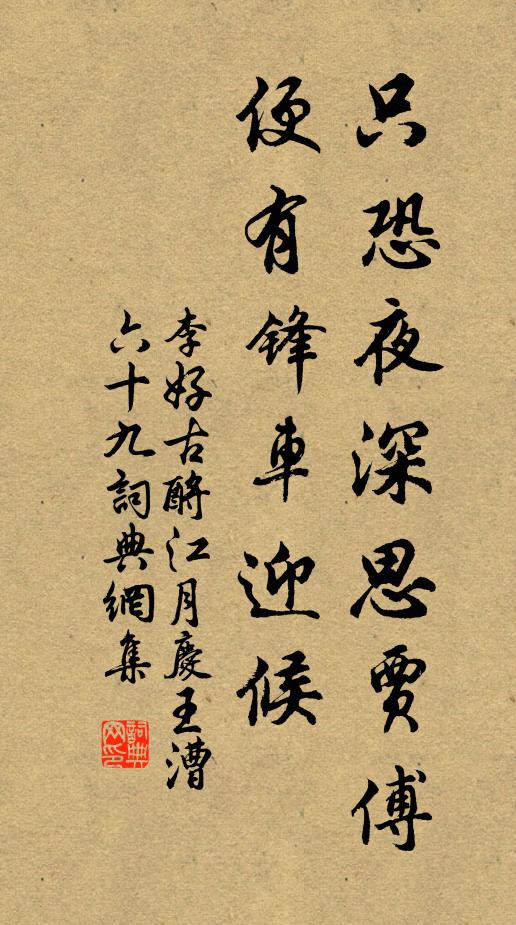 只恐夜深思賈傅
便有鋒車迎候
李好古酹江月慶王漕
六十九詞典網集
詞典網印